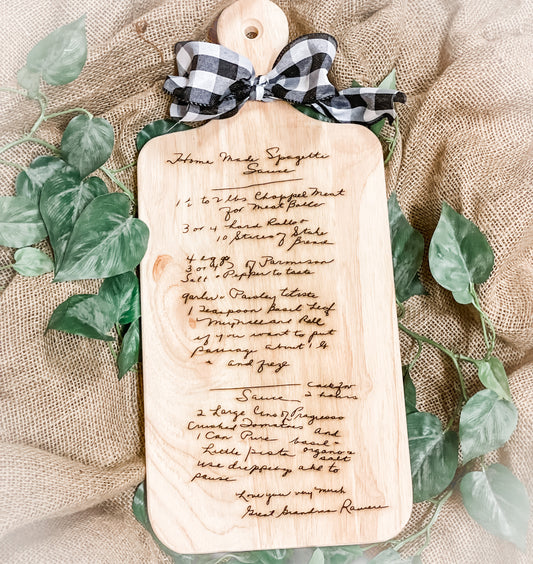 Home Made Spagette
Sause
1 ½ to 2 lbs Chopped Meat
for Meat Balls
3 or 4 hard Rolls or
10 Slices of Stale
bread
4 eggs
3 or 4 of Parmison
Salt + Papper to taste
garlic + Parsley to taste
1 Teaspoon Basil Leaf
Mix and Roll
if you want to put
sausage about 1 lb
and
Sause
Cook for
2 hours
2 Large Cans of Progresso
Crushed Tomatoes and
1 Can Pure basil +
Little pasta organo +
salt
use drippings add to
sause
Love you very much
Great Grandma Ramere